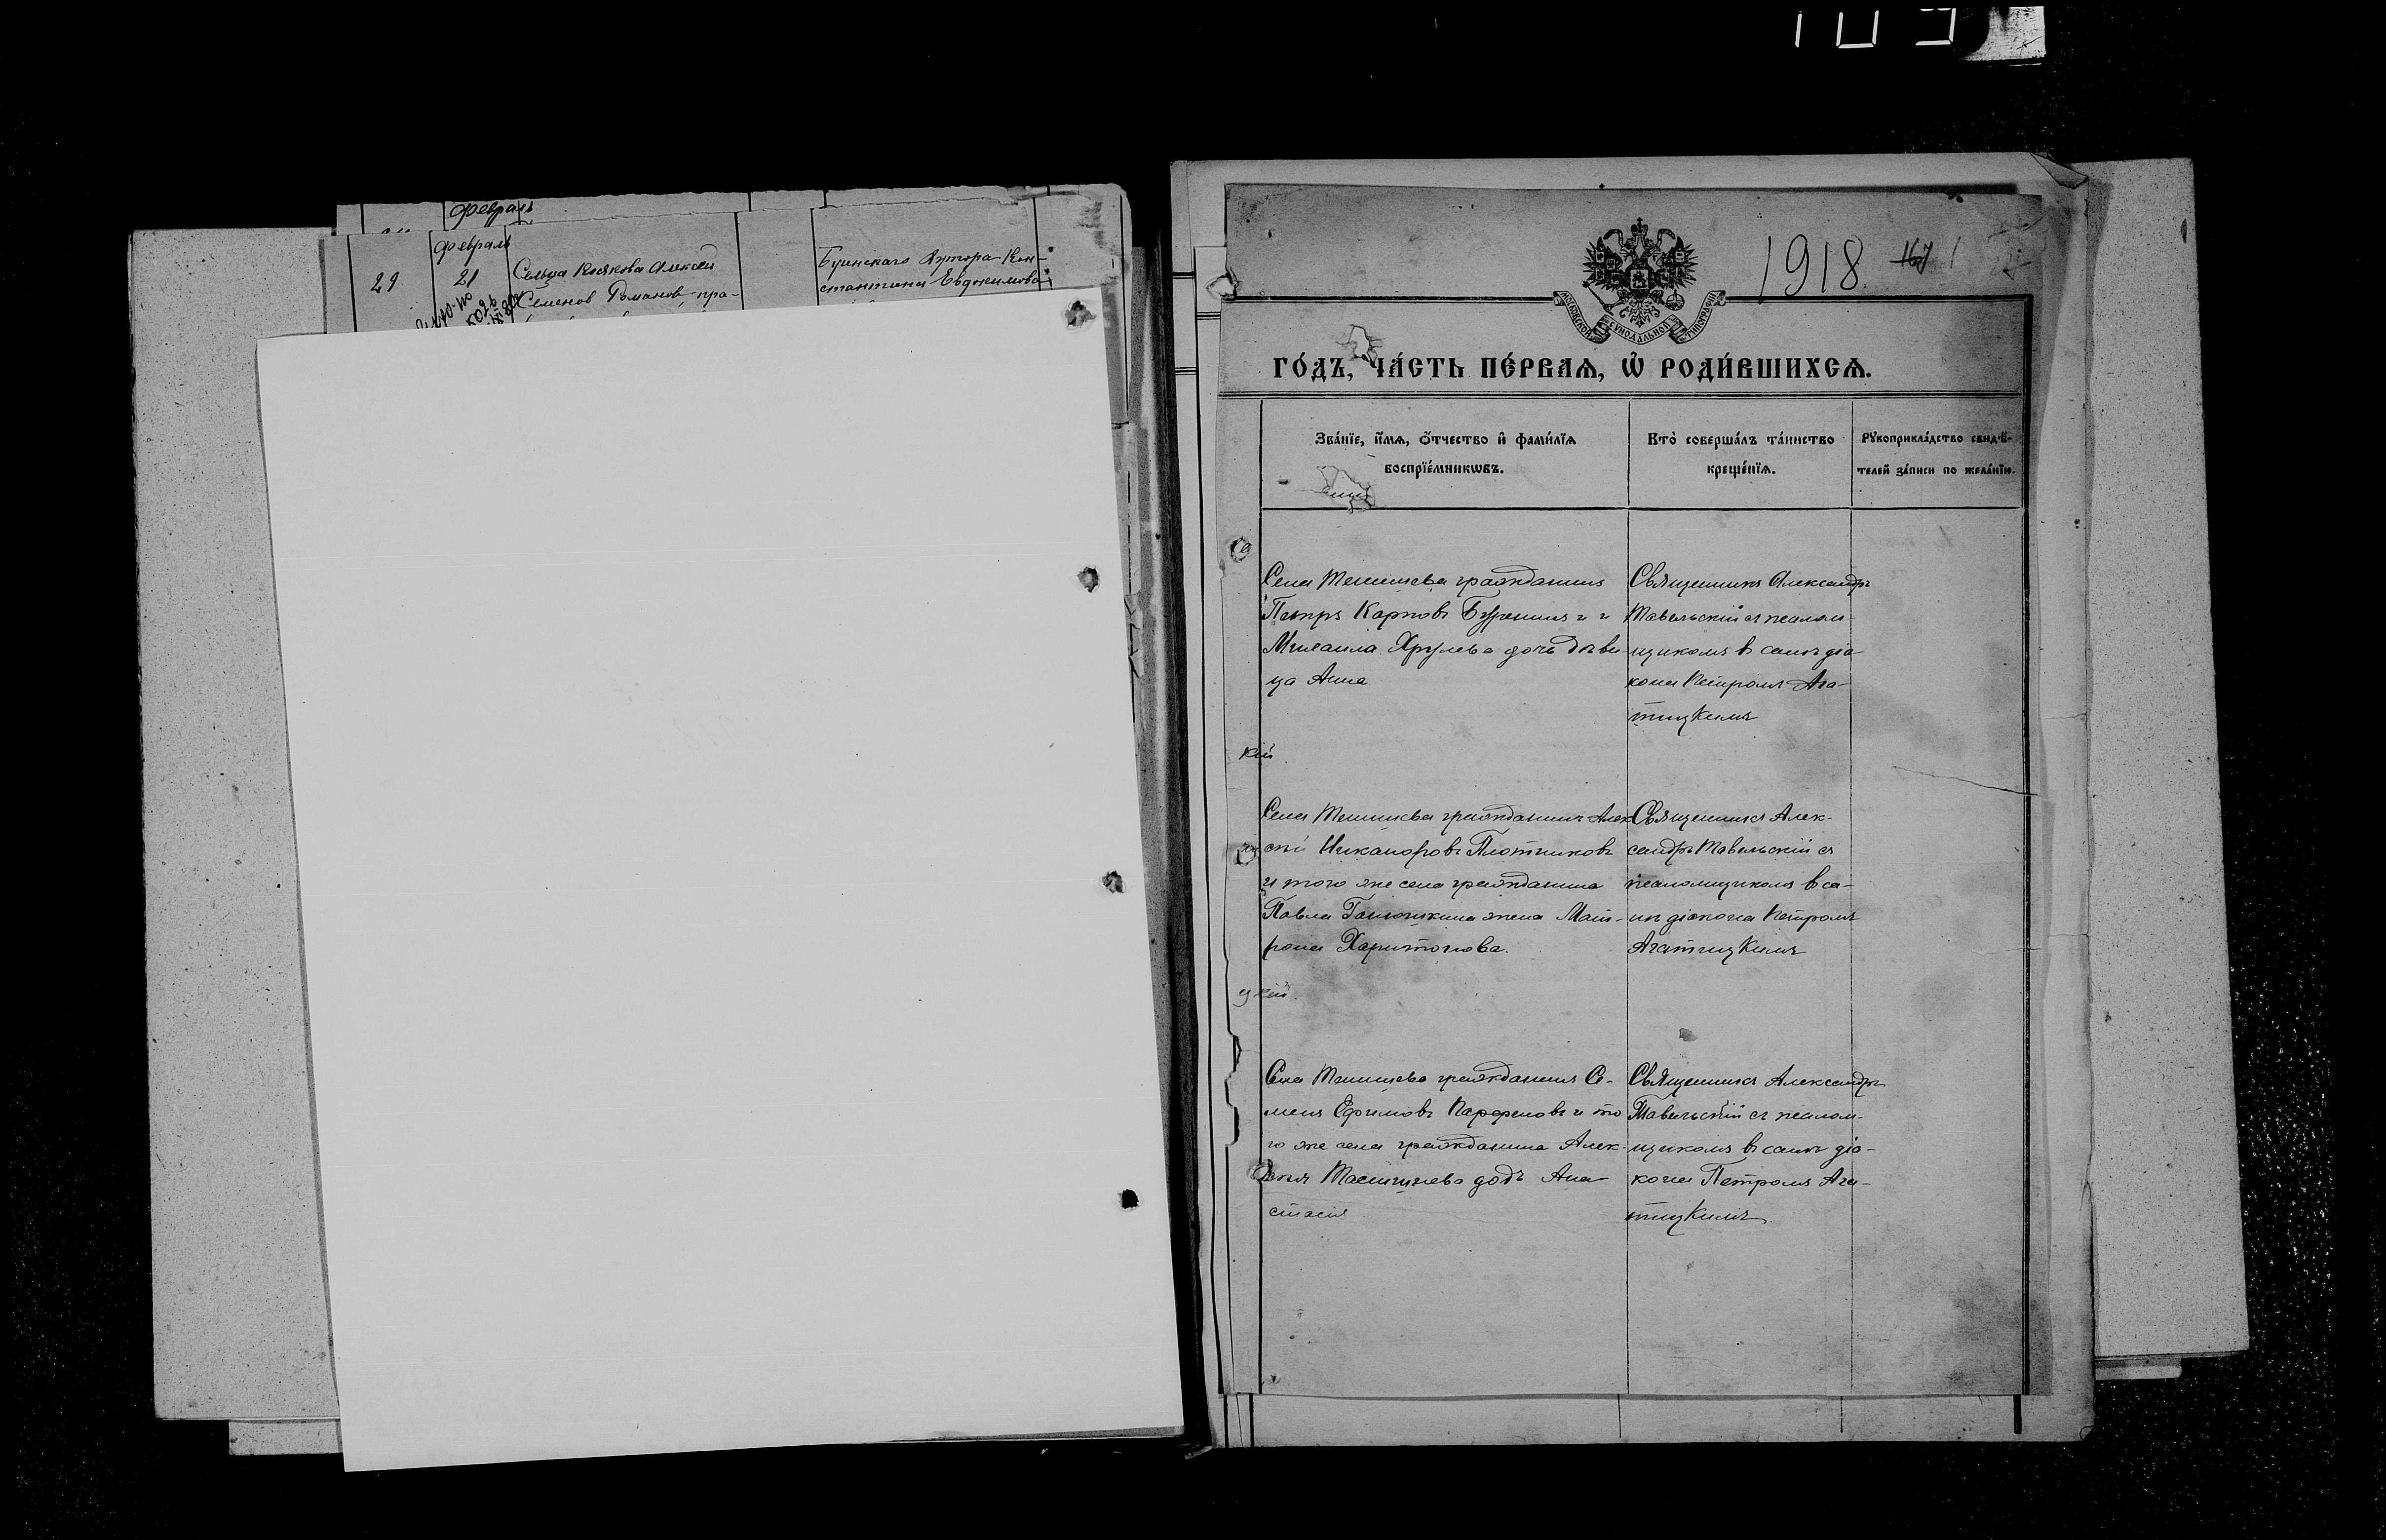 109
февраль
февраль
29
21
Сельца Косякова Алексей
Семенов Романов, пра-
Буинскаго Хутора Кон-
стантина Евдокимова
1918.
167
МОСКОВСКОЙ СѴНОДАЛЬНОЙ ТИПОГРАФІИ
ГО́ДЪ, ЧА́СТЬ ПЕ́РВАѦ, Ѽ РОДИ́ВШИХСѦ.
Зва́нїе, и҆́мѧ, ѻ҆́тчество и҆ фами́лїѧ
воспрїе́мникѡвъ.
Кто̀ соверша́лъ та́инство
креще́нїѧ.
Рꙋкоприкла́дство свидѣ́-
телей за́писи по жела́нїю.
Села Тенишева гражданинъ
Петръ Карповъ Буренинъ и
Михаила Хрулева дочь дѣви-
ца Анна
Священникъ Александръ
Тавельскій съ псалом-
щикомъ въ санѣ діа-
кона Петромъ Ага-
тицкимъ
кій
Села Тенишева гражданинъ Алек
сѣй Никаноровъ Плотниковъ
и того же села гражданина
Павла Ганюшкина жена Мат-
рона Харитонова.
Священникъ Алек-
сандръ Тавельскій съ
псаломщикомъ въ са-
нѣ діакона Петромъ
Агатицкимъ
цкій.
Села Тенишева гражданинъ Се-
менъ Ефимовъ Парфеновъ и то
го же села гражданина Алек-
дочь Ана
стасія
Священникъ Александръ
Тавельскій съ псалом-
щикомъ въ санѣ діа-
кона Петромъ Ага-
тицкимъ